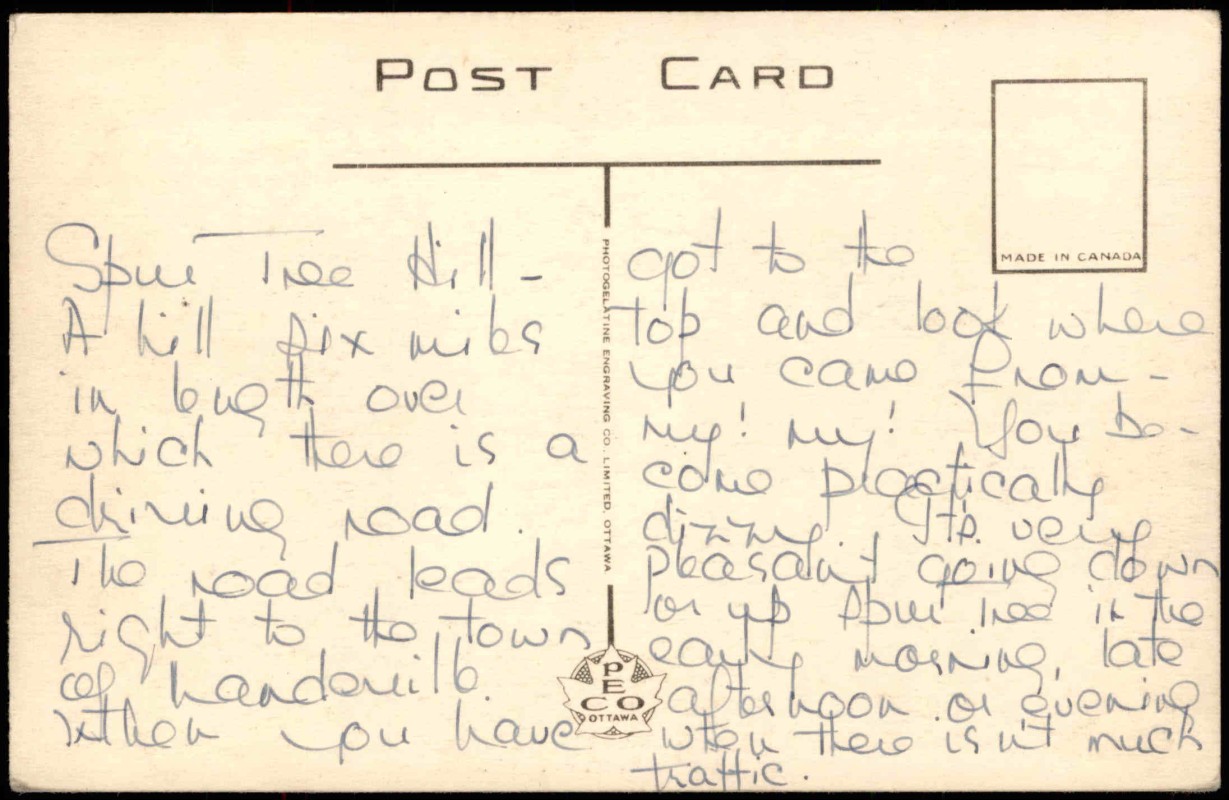 POST CARD
MADE IN CANADA
Spur Tree Hill -
A hill six miles
in length over
which there is a
driving road.
The road leads
right to the town
of Mandeville.
When you have
PHOTOGELATINE ENGRAVING CO. LIMITED, OTTAWA
PECO
OTTAWA
got to the
top and look where
you came from -
my! my! You be-
come practically
dizzy. It's very
pleasant going down
or up Spur Tree in the
early morning, late
afternoon or evening
when there isn't much
traffic.